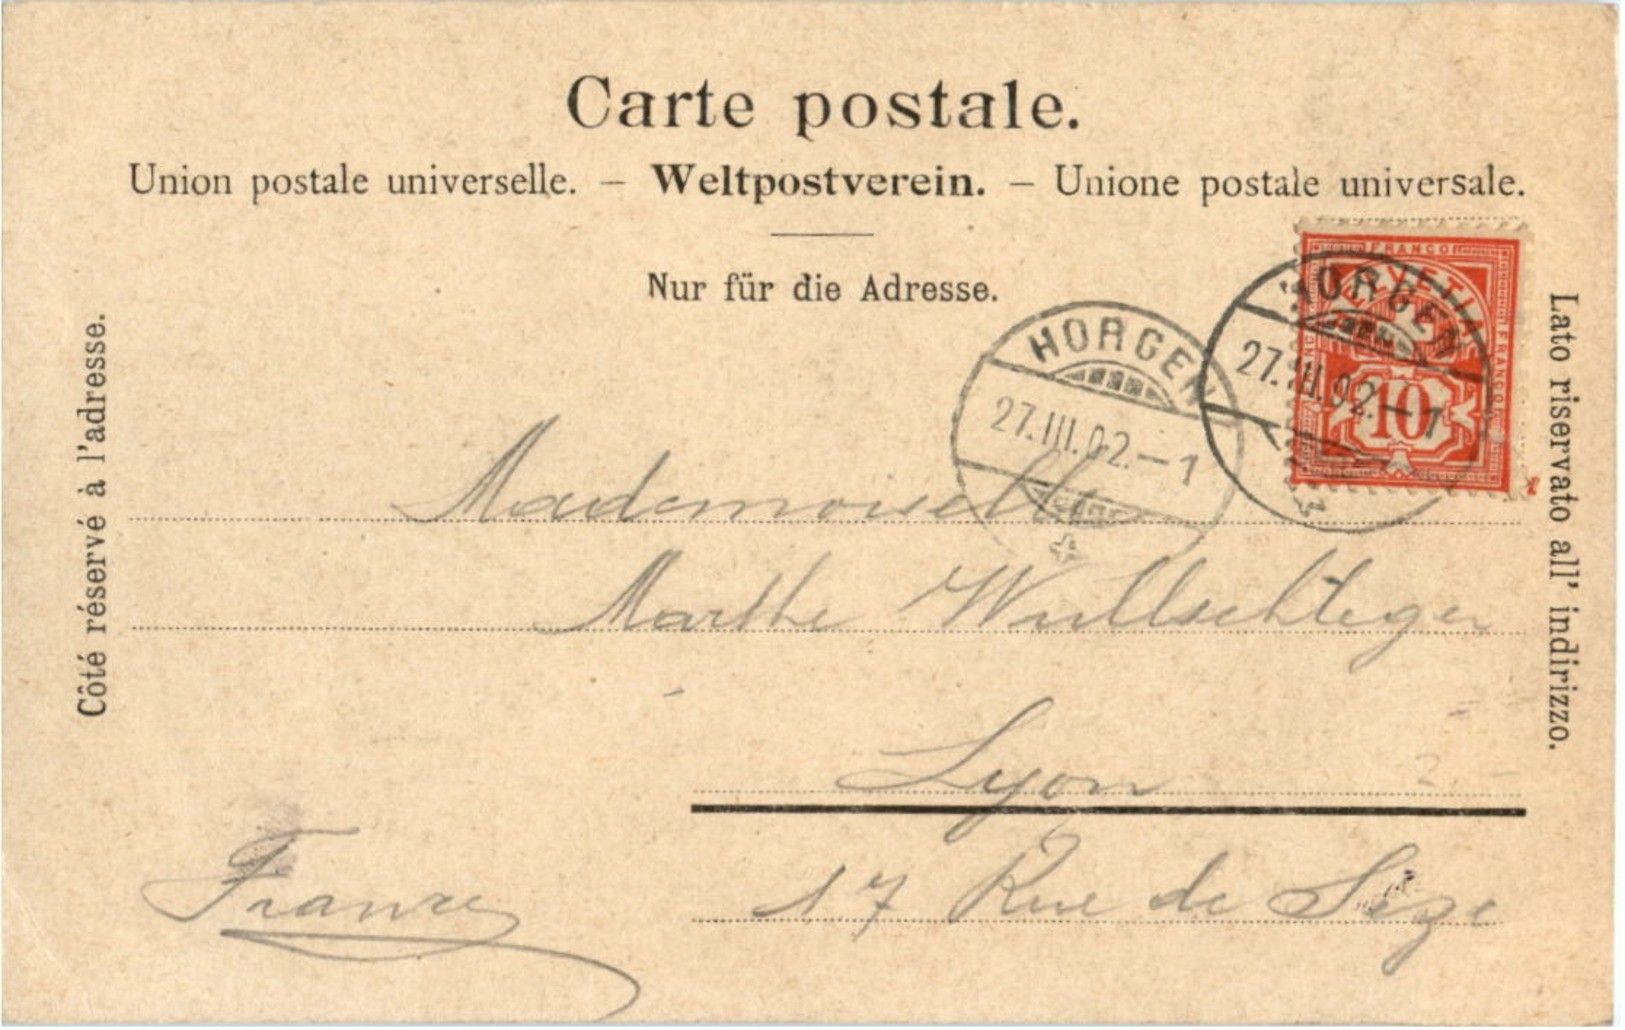 Carte postale.
Union postale universelle. – Weltpostverein. – Unione postale universale.
Nur für die Adresse.
Côté réservé à l'adresse.
Lato riservato all' indirizzo.
FRANCO
HELVETIA
FRANCO
FRANCO
10
HORGEN
27.III.02.–1
HORGEN
27.III.02.–1
Mademoiselle
Marthe Wullschleger
Lyon
2.–
17 Rue de Sèze
France